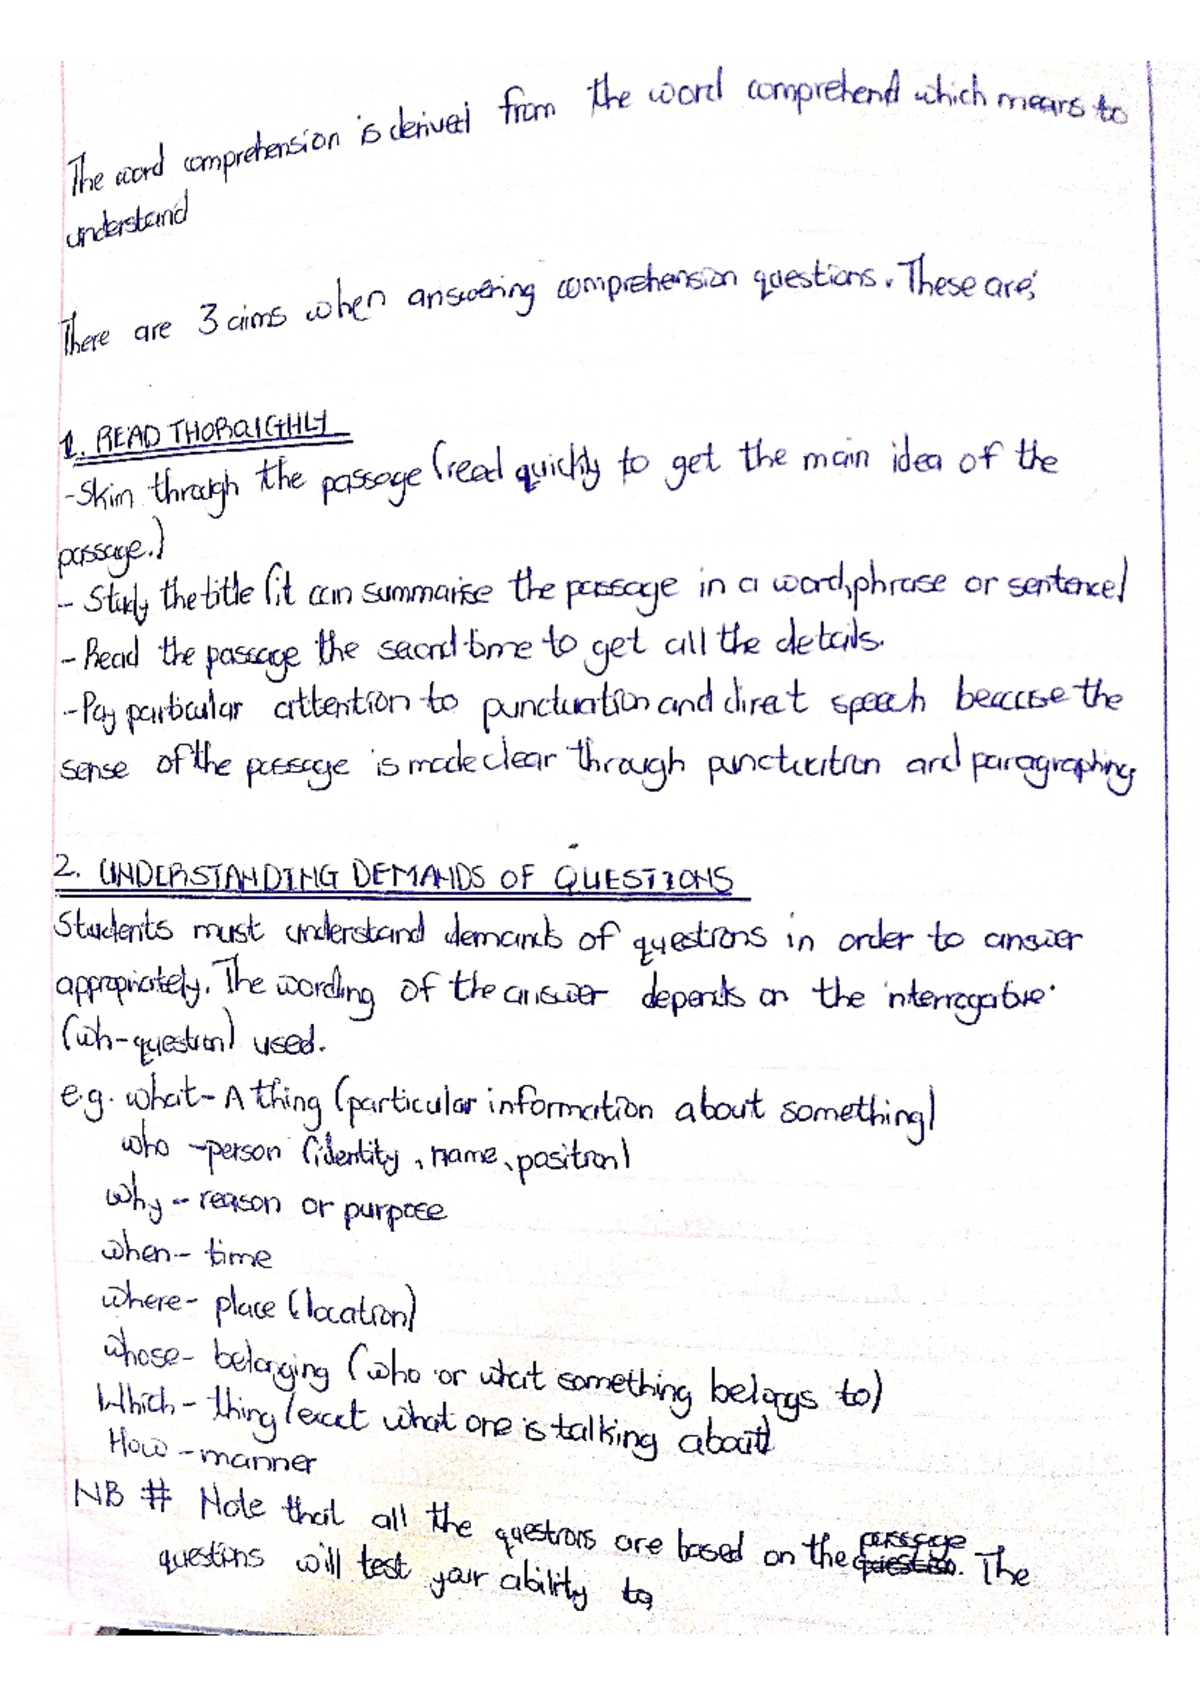 The word comprehension is derived from the word comprehend which means to
understand
There are 3 aims when answering comprehension questions. These are;
1. READ THOROUGHLY
-Skim through the passage (read quickly to get the main idea of the
passage.)
- Study the title (it can summarise the passage in a word, phrase or sentence)
- Read the passage the second time to get all the details.
- Pay particular attention to punctuation and direct speech because the
sense of the passage is made clear through punctuation and paragraphing
2. UNDERSTANDING DEMANDS OF QUESTIONS
Students must understand demands of questions in order to answer
appropriately. The wording of the answer depends on the interrogative
(wh-question) used.
e.g. what- A thing (particular information about something)
who -person (identity, name, position)
why - reason or purpose
when- time
where- place (location)
whose- belonging (who or what something belongs to)
Which - thing (exact what one is talking about)
How - manner
NB # Note that all the questions are based on the passage question. The
questions will test your ability to